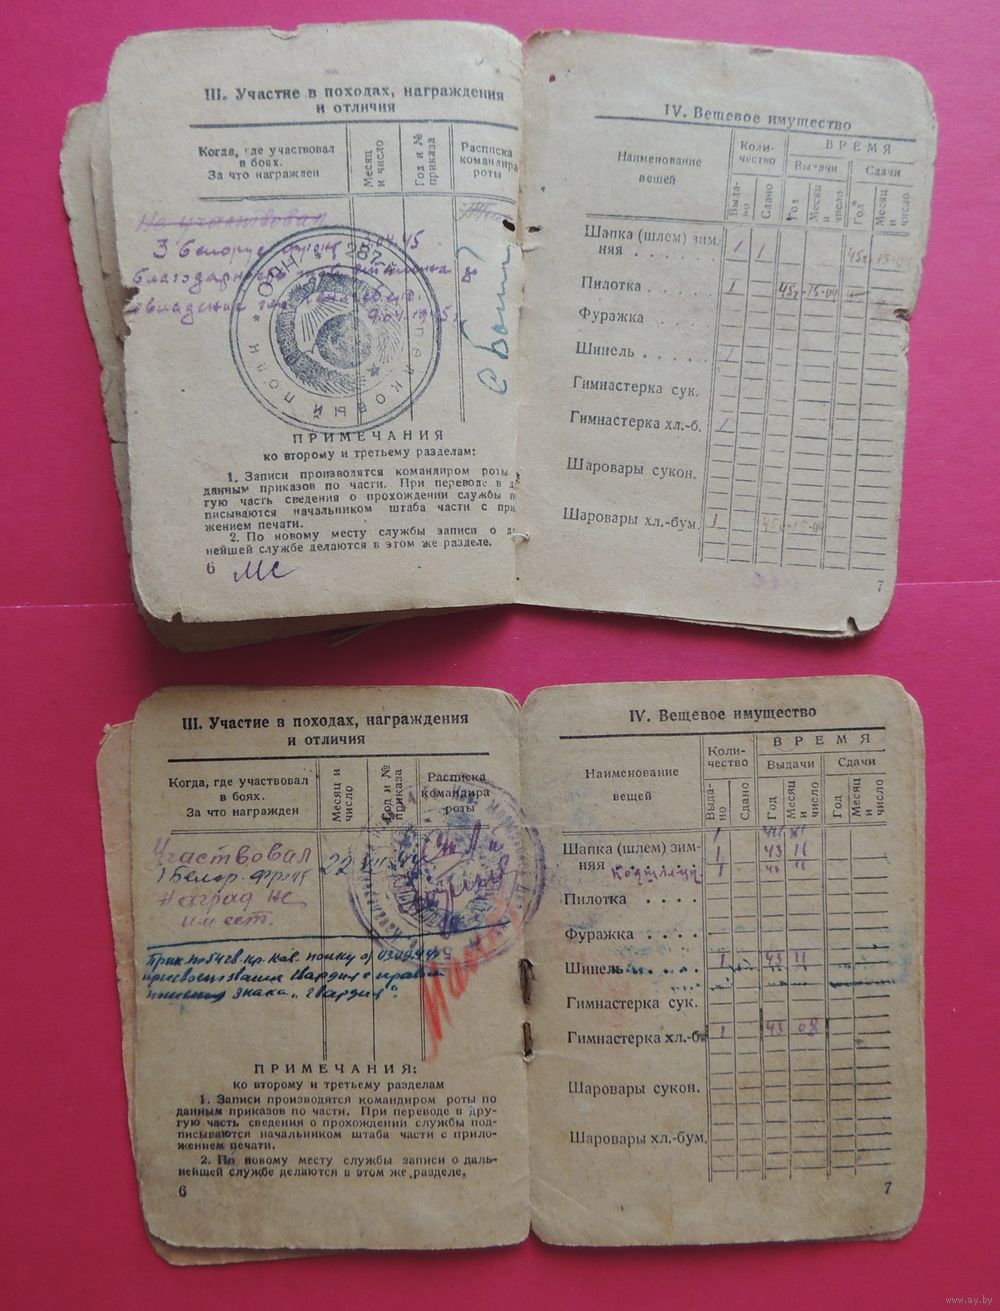 III. Участие в походах, награждения
и отличия
Когда, где участвовал
в боях.
За что награжден
Месяц
и число
Год и №
приказа
Расписка
командира
роты
Не участвовал
3 Белорус. фронт 3.04.45
9.04.1945
287-й
ПРИМЕЧАНИЯ
ко второму и третьему разделам:
1. Записи производятся командиром роты
данным приказов по части. При переводе в д
гую часть сведения о прохождении службы п
писываются начальником штаба части с при
жением печати.
2. По новому месту службы записи о д
нейшей службе делаются в этом же разделе.
6
МС
IV. Вещевое имущество
Наименование
вещей
Коли-
чество
ВРЕМЯ
Выдачи
Сдачи
Выда-
но
Сдано
Год
Месяц
и
число
Год
Месяц
и
число
Шапка (шлем) зим-
няя . . . . . . 1 1
Пилотка . . . . 1
Фуражка . . . .
Шинель . . . . . 1
Гимнастерка сук.
Гимнастерка хл.-б. 1
Шаровары сукон.
Шаровары хл.-бум. 1
7
III. Участие в походах, награждения
и отличия
Когда, где участвовал
в боях.
За что награжден
Месяц и
число
Год и №
приказа
Расписка
командира
роты
Участвовал
1 Белор. фронт
Наград не
имеет.
ПРИМЕЧАНИЯ:
ко второму и третьему разделам
1. Записи производятся командиром роты по
данным приказов по части. При переводе в дру-
гую часть сведения о прохождении службы под-
писываются начальником штаба части с прило-
жением печати.
2. По новому месту службы записи о даль-
нейшей службе делаются в этом же разделе.
6
IV. Вещевое имущество
Наименование
вещей
Коли-
чество
ВРЕМЯ
Выдачи
Сдачи
Выда-
но
Сдано
Год
Месяц
и
число
Год
Месяц
и
число
Шапка (шлем) зим- 1 43 11
няя
Пилотка . . . .
Фуражка . . . .
Шинель . . . . . 1 43 11
Гимнастерка сук.
Гимнастерка хл.-б. 1 43 08
Шаровары сукон.
Шаровары хл.-бум.
7
www.ay.by